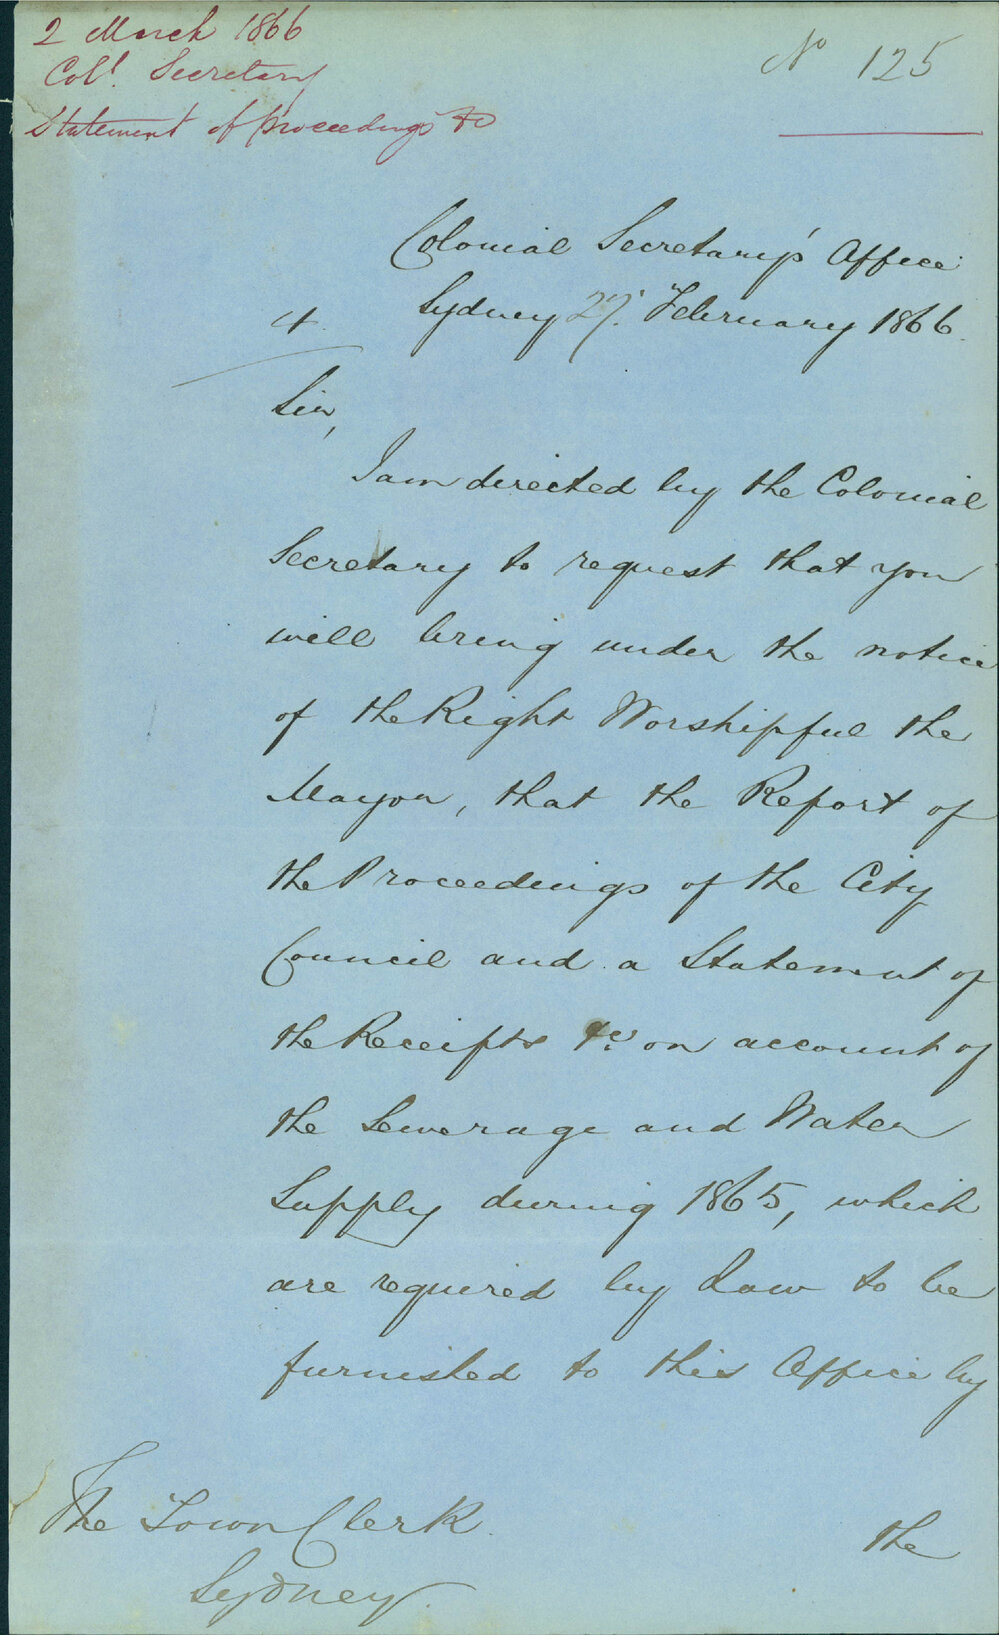 2 March 1866
Coll. Secretary
Statement of proceedings &c
No 125
Colonial Secretary's Office
Sydney 27. February 1866.
Sir,
I am directed by the Colonial
Secretary to request that you
will bring under the notice
of the Right Worshipful the
Mayor, that the Report of
the Proceedings of the City
Council and a Statement of
the Receipts &c. on account of
the Sewerage and Water
Supply during 1865, which
are required by Law to be
furnished to this Office by
The Town Clerk.
Sydney.
the